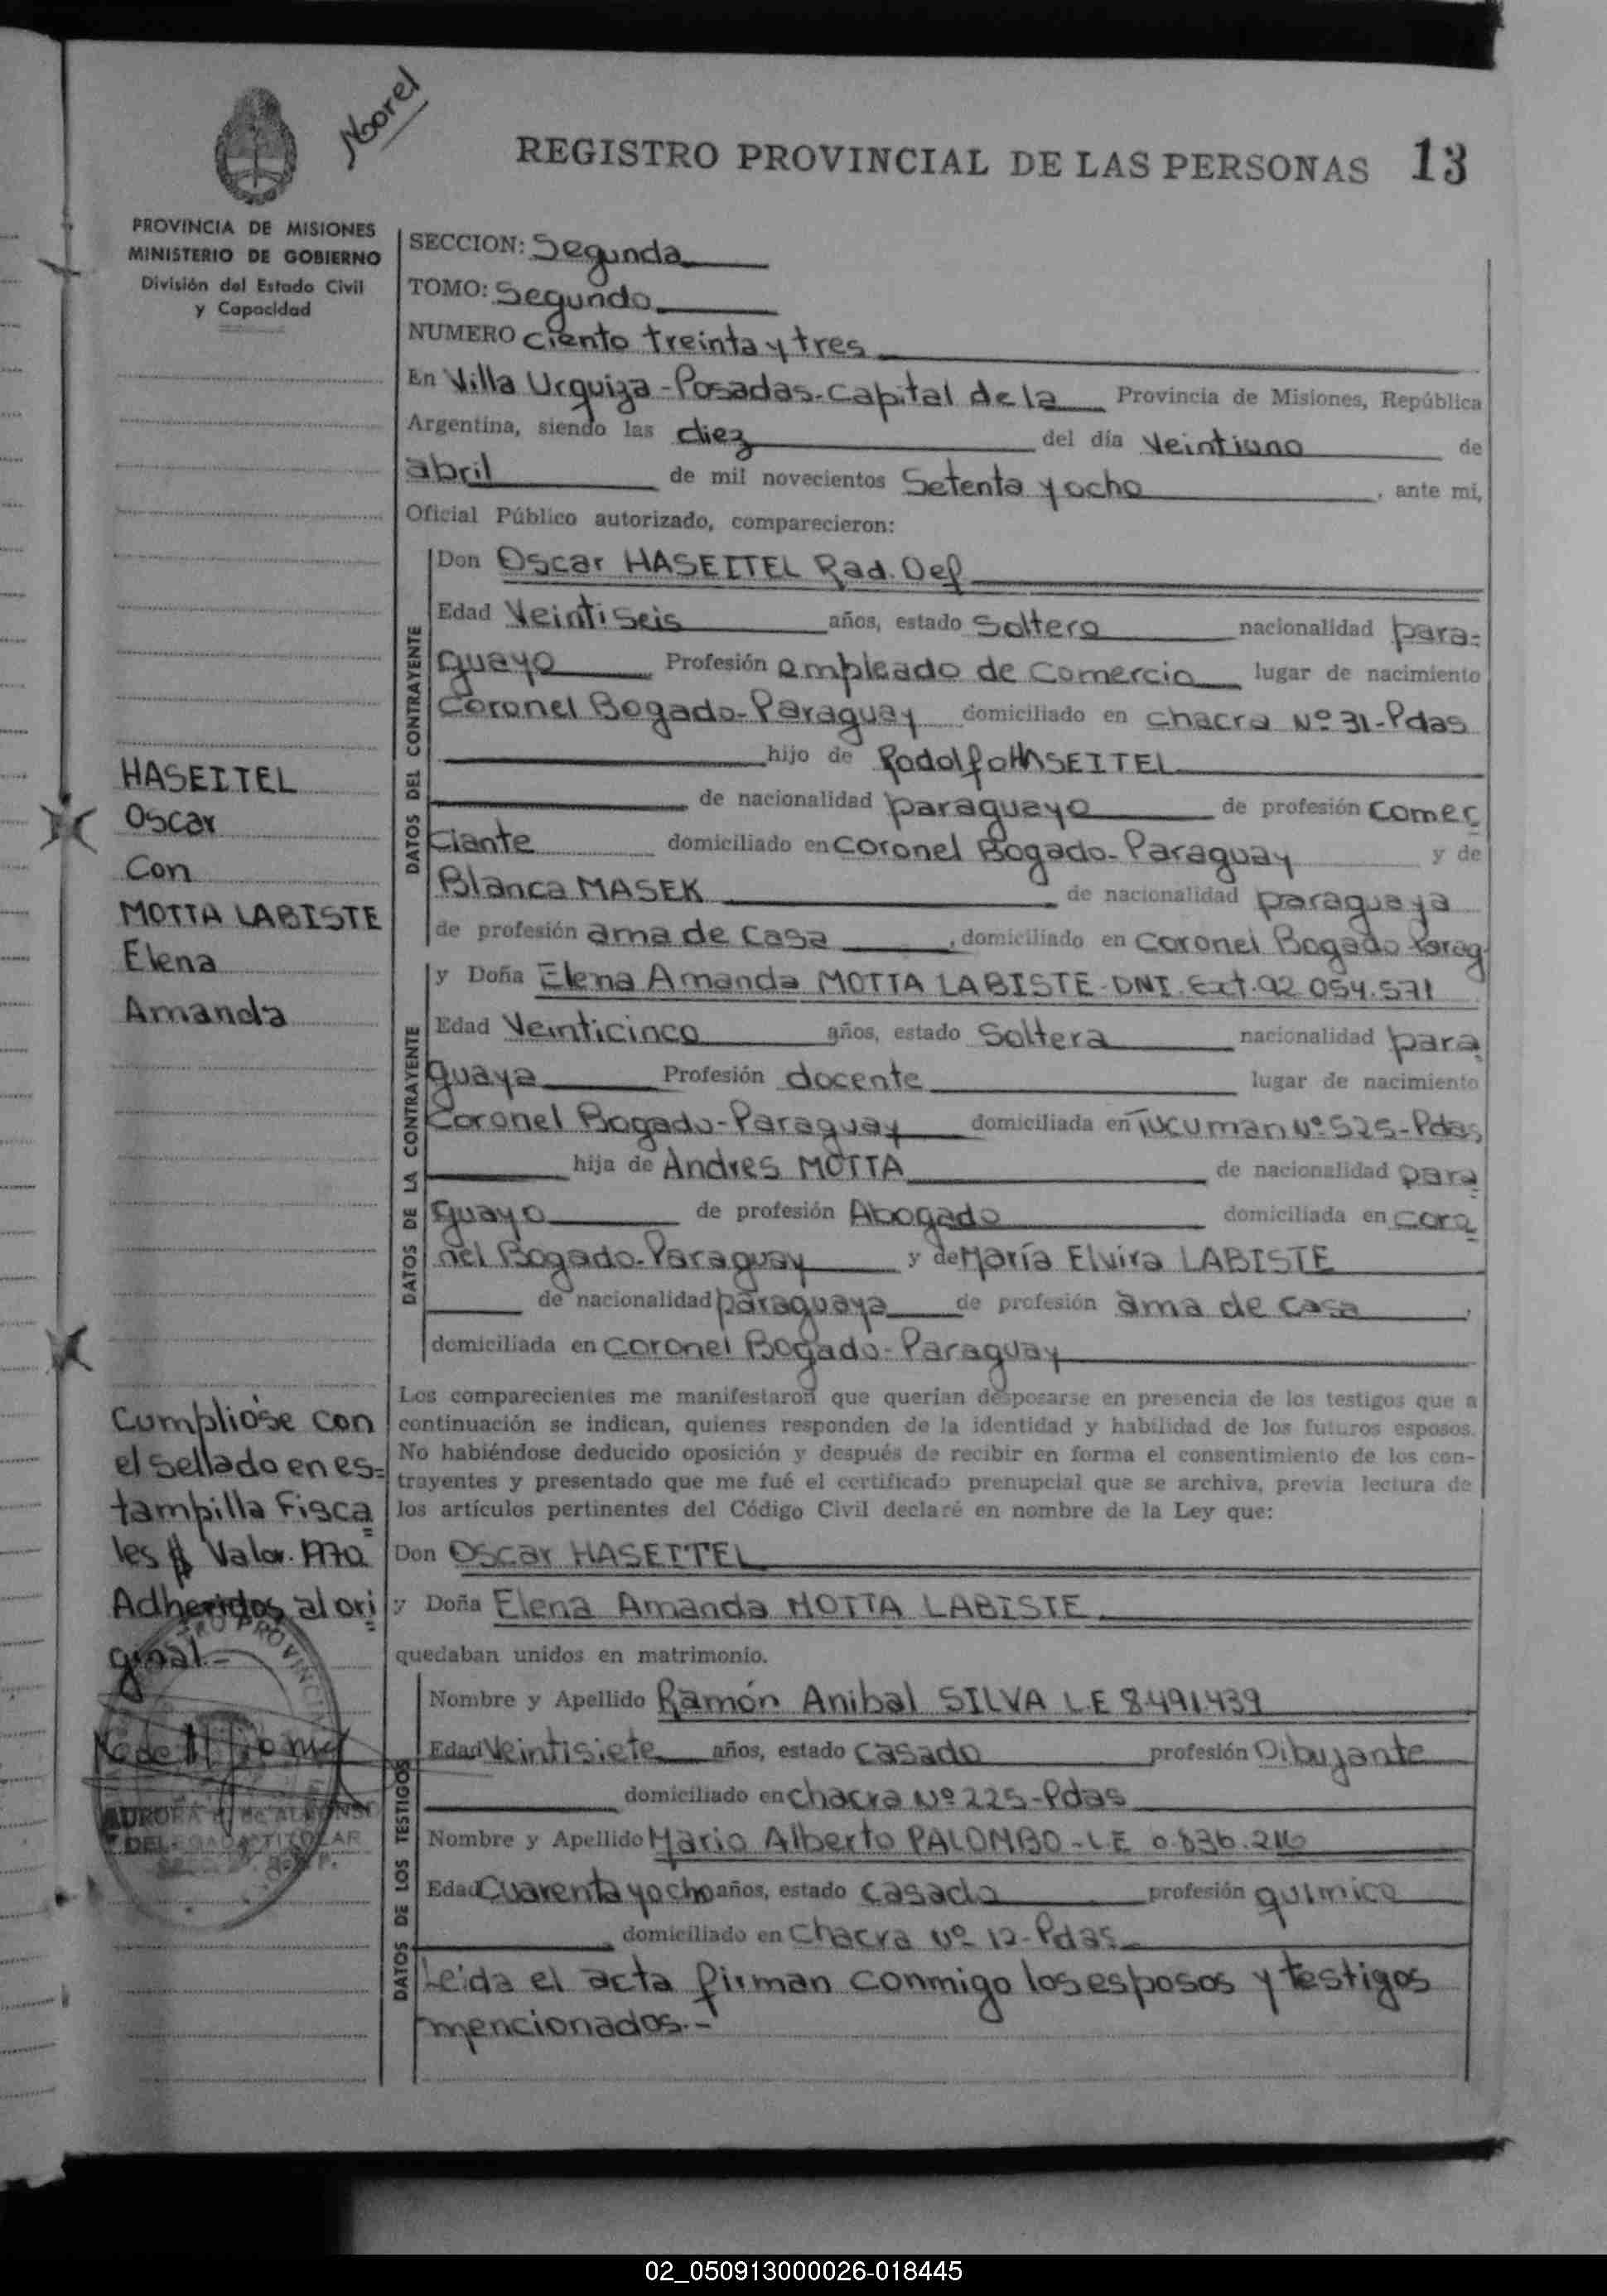 Morel
REGISTRO PROVINCIAL DE LAS PERSONAS 13
PROVINCIA DE MISIONES
MINISTERIO DE GOBIERNO
División del Estado Civil
y Capacidad
SECCION: Segunda
TOMO: Segundo
NUMERO Ciento treinta y tres
En Villa Urquiza - Posadas - Capital de la Provincia de Misiones, República
Argentina, siendo las diez del día Veintiuno de
abril de mil novecientos Setenta y ocho, ante mi,
Oficial Público autorizado, comparecieron:
DATOS DEL CONTRAYENTE
Don Oscar HASEITEL Rad. Def
Edad Veintiseis años, estado Soltero nacionalidad para=
guayo Profesión empleado de Comercio lugar de nacimiento
Coronel Bogado - Paraguay domiciliado en chacra Nº 31 - Pdas
hijo de Rodolfo HASEITEL
de nacionalidad paraguayo de profesión Comer
ciante domiciliado en Coronel Bogado - Paraguay y de
Blanca MASEK de nacionalidad paraguaya
de profesión ama de casa, domiciliado en Coronel Bogado Parag
DATOS DE LA CONTRAYENTE
y Doña Elena Amanda MOTTA LABISTE - DNI. Ext. 92 054.571
Edad Veinticinco años, estado Soltera nacionalidad para
guaya Profesión docente lugar de nacimiento
Coronel Bogado - Paraguay domiciliada en Tucuman Nº 525 - Pdas
hija de Andres MOTTA de nacionalidad para
guayo de profesión Abogado domiciliada en coro
nel Bogado - Paraguay y de María Elvira LABISTE
de nacionalidad paraguaya de profesión ama de casa,
domiciliada en Coronel Bogado - Paraguay
Los comparecientes me manifestaron que querían desposarse en presencia de los testigos que a
continuación se indican, quienes responden de la identidad y habilidad de los futuros esposos.
No habiéndose deducido oposición y después de recibir en forma el consentimiento de los con-
trayentes y presentado que me fué el certificado prenupcial que se archiva, previa lectura de
los artículos pertinentes del Código Civil declaré en nombre de la Ley que:
Don Oscar HASEITEL
y Doña Elena Amanda MOTTA LABISTE
quedaban unidos en matrimonio.
DATOS DE LOS TESTIGOS
Nombre y Apellido Ramón Anibal SILVA L.E 8.491.439
Edad Veintisiete años, estado casado profesión Dibujante
domiciliado en chacra Nº 225 - Pdas
Nombre y Apellido Mario Alberto PALOMBO - L.E 0.836.216
Edad Cuarenta y ocho años, estado casado profesión químico
, domiciliado en Chacra Nº 12 - Pdas
Leída el acta firman conmigo los esposos y testigos
mencionados.-
HASEITEL
Oscar
Con
MOTTA LABISTE
Elena
Amanda
Cumplióse con
el sellado en es=
tampilla Fisca
les $ Valor. 1970
Adheridos al ori
ginal.-
DELEGADA TITULAR
02_050913000026-018445